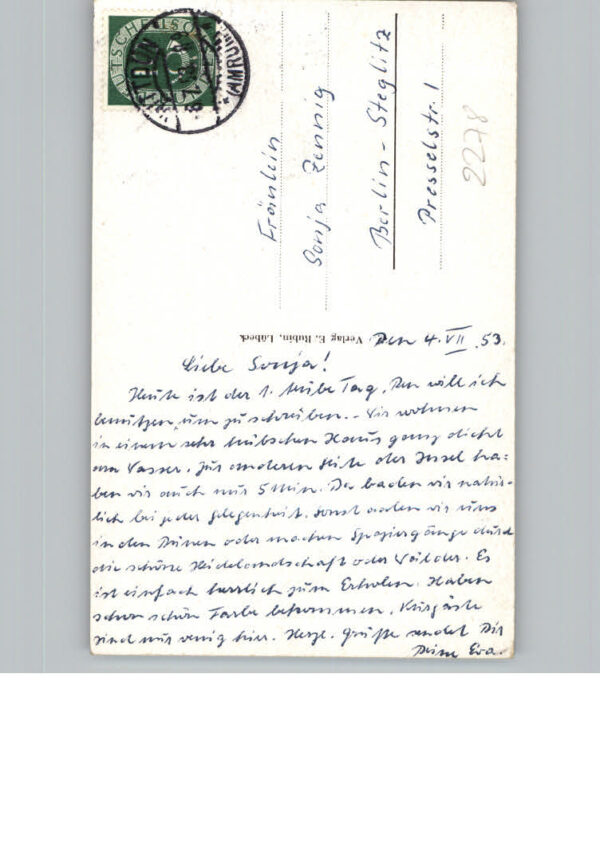 DEUTSCHE BUNDESPOST
(AMRUM)
Fräulein
Sonja Zennig
Berlin-Steglitz
Presselstr. 1
2278
Verlag E. Rubin, Lübeck
Den 4. VII. 53.
Liebe Sonja!
Heute ist der 1. trübe Tag. Den will ich
benutzen, um zu schreiben. – Wir wohnen
in einem sehr hübschen Haus ganz dicht
am Wasser. Zur anderen Seite der Insel ha-
ben wir auch nur 5 Min. Da baden wir natür-
lich bei jeder Gelegenheit. Sonst aalen wir uns
in den Dünen oder machen Spaziergänge durch
die schöne Heidelandschaft oder Wälder. Es
ist einfach herrlich zum Erholen. Haben
schon schön Farbe bekommen. Kurgäste
sind nur wenig hier. Herzl. Grüße sendet Dir
Deine Eva.